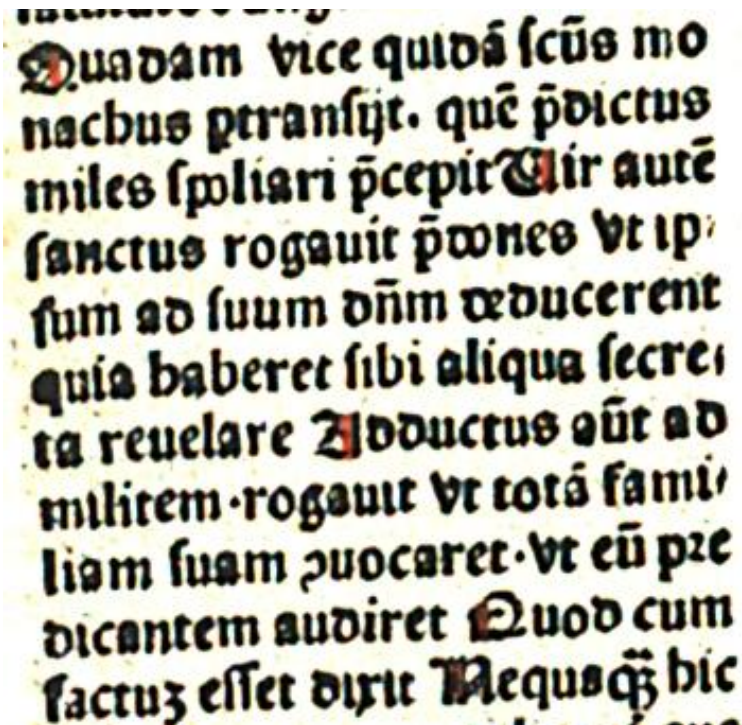 Quadam vice quidã ſcũs mo
nachus ꝑtranſijt. quẽ p̃dictus
miles ſpoliari p̃cepit Uir autẽ
ſanctus rogauit p̃dones vt ip⸗
ſum ad ſuum dñm deducerent
quia haberet ſibi aliqua ſecre⸗
ta reuelare Adductus aũt ad
militem·rogauit vt totã fami⸗
liam ſuam ꝯuocaret·vt eũ pꝛe
dicantem audiret Quod cum
factuʒ eſſet dixit Nequaqꝫ̃ hic